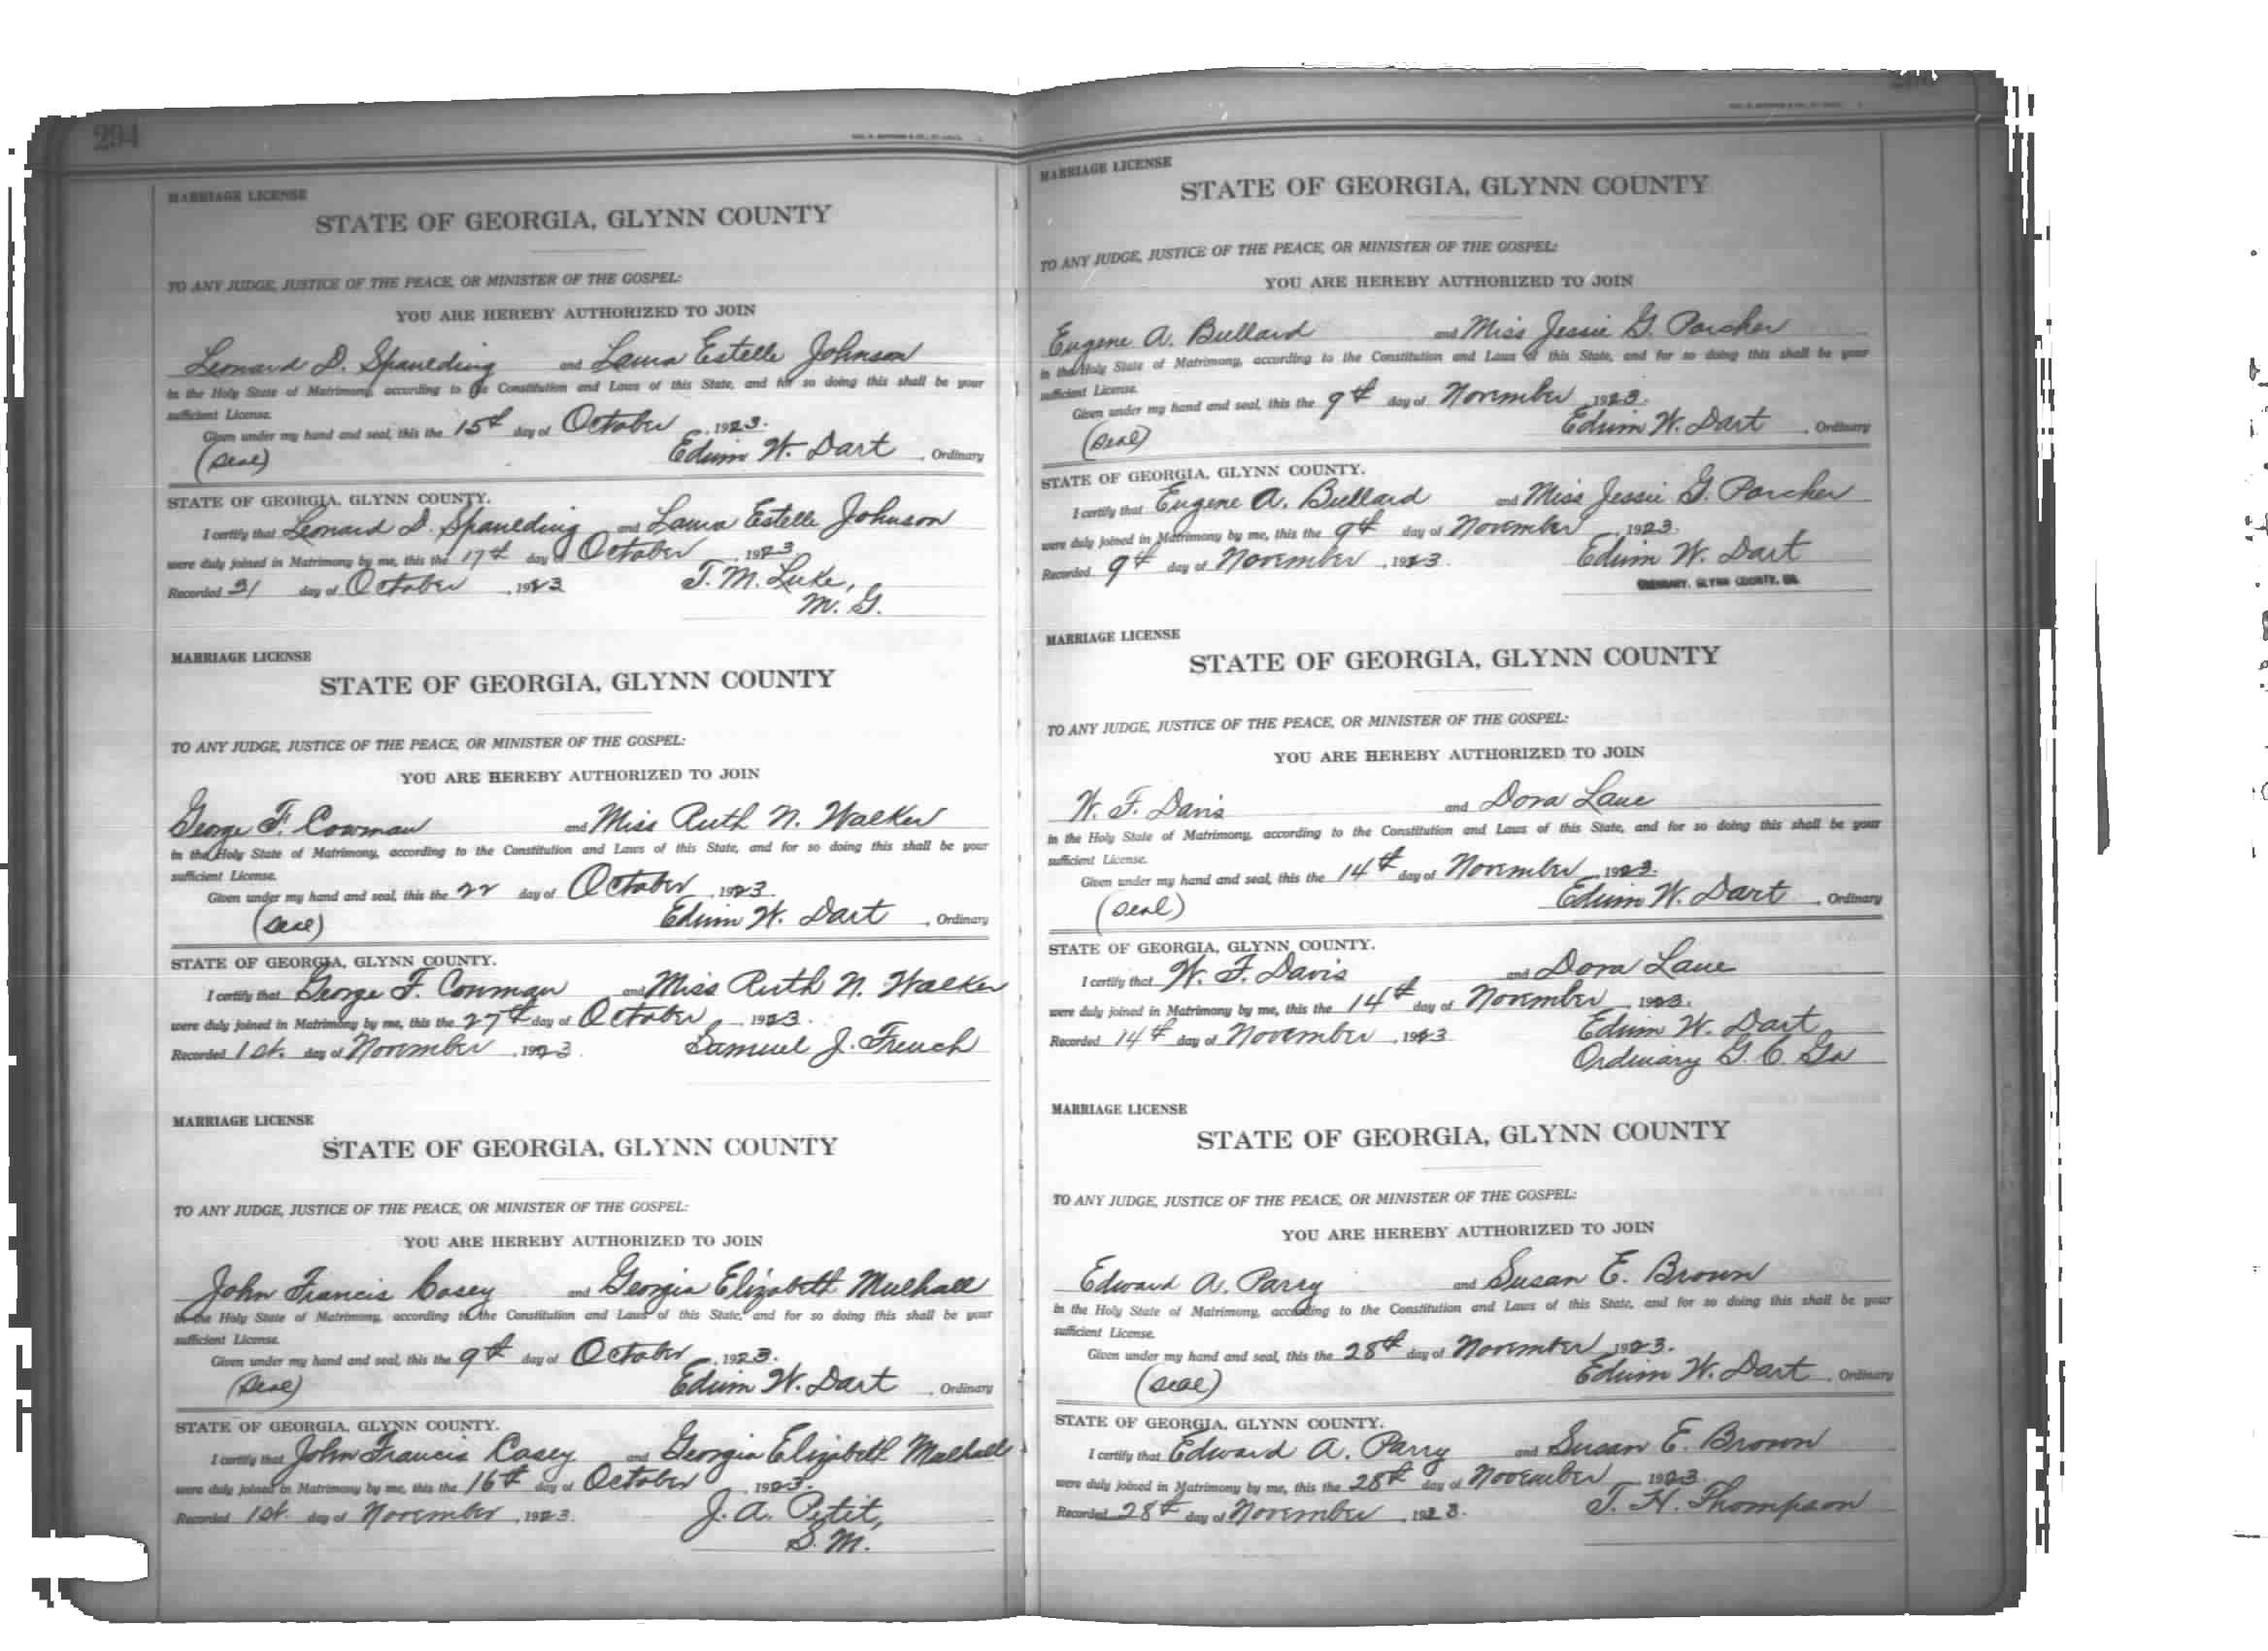 294
MARRIAGE LICENSE
STATE OF GEORGIA, GLYNN COUNTY
TO ANY JUDGE, JUSTICE OF THE PEACE, OR MINISTER OF THE GOSPEL:
YOU ARE HEREBY AUTHORIZED TO JOIN
Leonard D. Spaulding and Laura Estelle Johnson
in the Holy State of Matrimony, according to the Constitution and Laws of this State, and for so doing this shall be your
sufficient License.
Given under my hand and seal, this the 15th day of October, 1923.
(Seal) Edwin W. Dart, Ordinary
STATE OF GEORGIA, GLYNN COUNTY.
I certify that Leonard D. Spaulding and Laura Estelle Johnson
were duly joined in Matrimony by me, this the 17th day of October, 1923
Recorded 31 day of October, 1923 T. M. Luke,
M. G.
MARRIAGE LICENSE
STATE OF GEORGIA, GLYNN COUNTY
TO ANY JUDGE, JUSTICE OF THE PEACE, OR MINISTER OF THE GOSPEL:
YOU ARE HEREBY AUTHORIZED TO JOIN
George F. Cowman and Miss Ruth N. Walker
in the Holy State of Matrimony, according to the Constitution and Laws of this State, and for so doing this shall be your
sufficient License.
Given under my hand and seal, this the 22 day of October, 1923.
(Seal) Edwin W. Dart, Ordinary
STATE OF GEORGIA, GLYNN COUNTY.
I certify that George F. Cowman and Miss Ruth N. Walker
were duly joined in Matrimony by me, this the 27th day of October, 1923.
Recorded 1st. day of November, 1923. Samuel J. French
MARRIAGE LICENSE
STATE OF GEORGIA, GLYNN COUNTY
TO ANY JUDGE, JUSTICE OF THE PEACE, OR MINISTER OF THE GOSPEL:
YOU ARE HEREBY AUTHORIZED TO JOIN
John Francis Casey and Georgia Elizabeth Mulhall
in the Holy State of Matrimony, according to the Constitution and Laws of this State, and for so doing this shall be your
sufficient License.
Given under my hand and seal, this the 9th day of October, 1923.
(Seal) Edwin W. Dart, Ordinary
STATE OF GEORGIA, GLYNN COUNTY.
I certify that John Francis Casey and Georgia Elizabeth Mulhall
were duly joined in Matrimony by me, this the 16th day of October, 1923.
Recorded 1st. day of November, 1923. J. A. Petit,
S. M.
MARRIAGE LICENSE
STATE OF GEORGIA, GLYNN COUNTY
TO ANY JUDGE, JUSTICE OF THE PEACE, OR MINISTER OF THE GOSPEL:
YOU ARE HEREBY AUTHORIZED TO JOIN
Eugene A. Bullard and Miss Jessie G. Parcher
in the Holy State of Matrimony, according to the Constitution and Laws of this State, and for so doing this shall be your
sufficient License.
Given under my hand and seal, this the 9th day of November, 1923.
(Seal) Edwin W. Dart, Ordinary
STATE OF GEORGIA, GLYNN COUNTY.
I certify that Eugene A. Bullard and Miss Jessie G. Parcher
were duly joined in Matrimony by me, this the 9th day of November, 1923.
Recorded 9th day of November, 1923. Edwin W. Dart
ORDINARY, GLYNN COUNTY, GA.
MARRIAGE LICENSE
STATE OF GEORGIA, GLYNN COUNTY
TO ANY JUDGE, JUSTICE OF THE PEACE, OR MINISTER OF THE GOSPEL:
YOU ARE HEREBY AUTHORIZED TO JOIN
W. F. Davis and Dora Lane
in the Holy State of Matrimony, according to the Constitution and Laws of this State, and for so doing this shall be your
sufficient License.
Given under my hand and seal, this the 14th day of November, 1923.
(Seal) Edwin W. Dart, Ordinary
STATE OF GEORGIA, GLYNN COUNTY.
I certify that W. F. Davis and Dora Lane
were duly joined in Matrimony by me, this the 14th day of November, 1923.
Recorded 14th day of November, 1923 Edwin W. Dart
Ordinary G. C. Ga
MARRIAGE LICENSE
STATE OF GEORGIA, GLYNN COUNTY
TO ANY JUDGE, JUSTICE OF THE PEACE, OR MINISTER OF THE GOSPEL:
YOU ARE HEREBY AUTHORIZED TO JOIN
Edward A. Parry and Susan E. Brown
in the Holy State of Matrimony, according to the Constitution and Laws of this State, and for so doing this shall be your
sufficient License.
Given under my hand and seal, this the 28th day of November, 1923.
(Seal) Edwin W. Dart, Ordinary
STATE OF GEORGIA, GLYNN COUNTY.
I certify that Edward A. Parry and Susan E. Brown
were duly joined in Matrimony by me, this the 28th day of November, 1923.
Recorded 28th day of November, 1923. T. H. Thompson